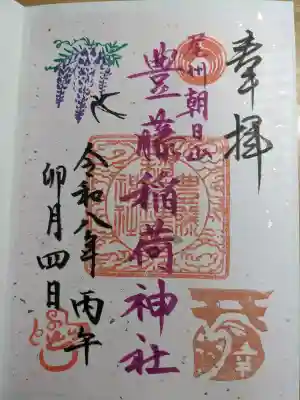 奉拝
尾州朝日山
豊藤稲荷神社
令和八年 丙午
卯月四日